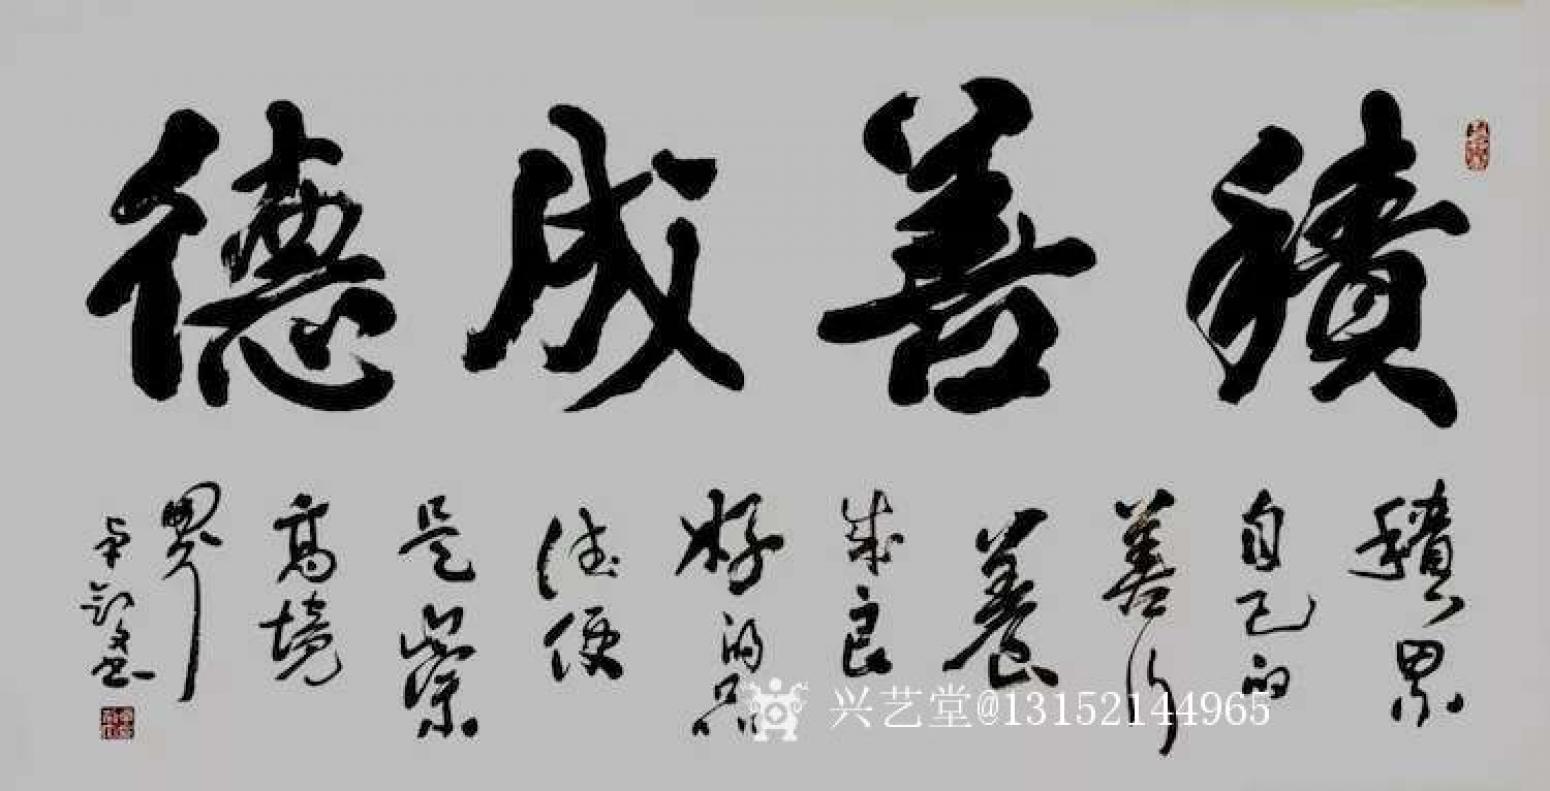 積善成德
積累
自己的
善行
養
成良
好的品
德便
是崇
高境
界
兴艺堂@13152144965